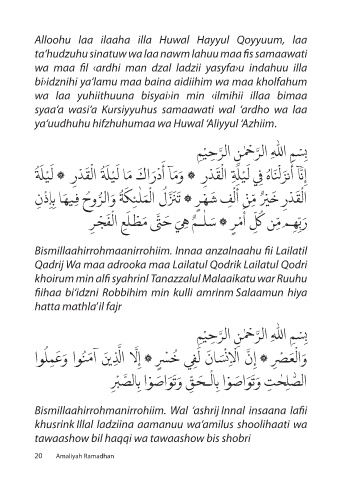 Alloohu laa ilaaha illa Huwal Hayyul Qoyyuum, laa
ta'hudzuhu sinatuw wa laa nawm lahuu maa fis samaawati
wa maa fil ‹ardhi man dzal ladzii yasyfa›u indahuu illa
bi›idznihi ya'lamu maa baina aidiihim wa maa kholfahum
wa laa yuhiithuuna bisyai›in min ‹ilmihii illaa bimaa
syaa'a wasi'a Kursiyyuhus samaawati wal 'ardho wa laa
ya'uudhuhu hifzhuhumaa wa Huwal 'Aliyyul 'Azhiim.
بِسْمِ اللهِ الرَّحْمٰنِ الرَّحِيْمِ
إِنَّآ أَنزَلْنَاهُ فِي لَيْلَةِ الْقَدْرِ * وَمَآ أَدْرَاكَ مَا لَيْلَةُ الْقَدْرِ * لَيْلَةُ
الْقَدْرِ خَيْرٌ مِّنْ أَلْفِ شَهْرٍ * تَنَزَّلُ الْمَلٰئِكَةُ وَالرُّوحُ فِيهَا بِإِذْنِ
رَبِّهِم مِّن كُلِّ أَمْرٍ * سَلٰمٌ هِيَ حَتَّى مَطْلَعِ الْفَجْرِ
Bismillaahirrohmaanirrohiim. Innaa anzalnaahu fii Lailatil
Qadrij Wa maa adrooka maa Lailatul Qodrik Lailatul Qodri
khoirum min alfi syahrinl Tanazzalul Malaaikatu war Ruuhu
fiihaa bi'idzni Robbihim min kulli amrinm Salaamun hiya
hatta mathla'il fajr
بِسْمِ اللهِ الرَّحْمٰنِ الرَّحِيْمِ
وَالْعَصْرِ * إِنَّ الْاِنْسَانَ لَفِي خُسْرٍ * إِلَّا الَّذِينَ آمَنُوا وَعَمِلُوا
الصّٰلِحٰتِ وَتَوَاصَوْا بِالْحَقِّ وَتَوَاصَوْا بِالصَّبْرِ
Bismillaahirrohmanirrohiim. Wal 'ashrij Innal insaana lafii
khusrink Illal ladziina aamanuu wa'amilus shoolihaati wa
tawaashow bil haqqi wa tawaashow bis shobri
20 Amaliyah Ramadhan